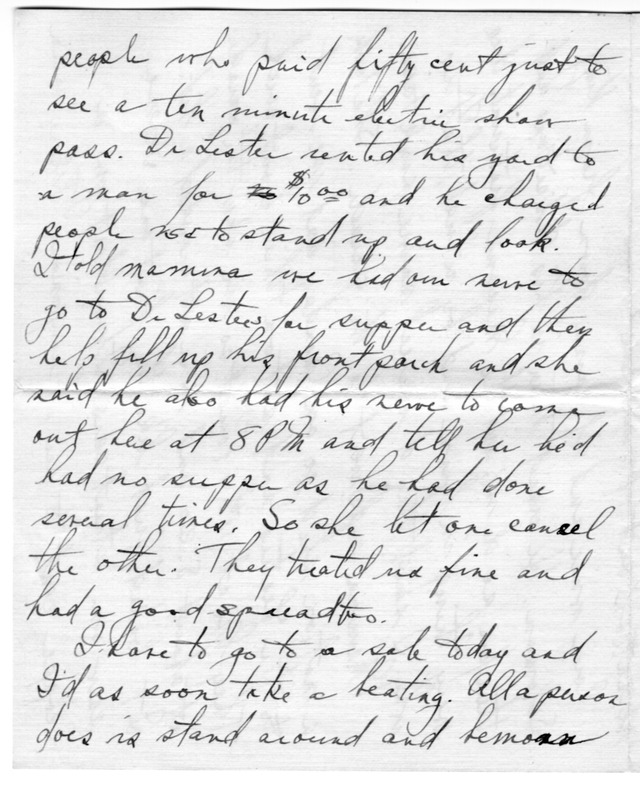 people who paid fifty cent just to
see a ten minute electric show
pass. Dr Lester rented his yard to
a man for $10.00 and he charged
people to stand up and look.
I told mamma we had our nerve to
go to Dr Lesters for supper and then
help fill up his front porch and she
said he also had his nerve to come
out here at 8 PM and tell her he'd
had no supper as he had done
several times. So she let one cansel
the other. They treated us fine and
had a good spread too.
I have to go to a sale today and
I'd as soon take a beating. All a person
does is stand around and bemoan